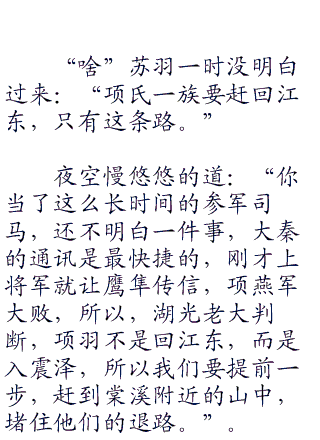 “啥”苏羽一时没明白
过来：“项氏一族要赶回江
东，只有这条路。”
夜空慢悠悠的道：“你
当了这么长时间的参军司
马，还不明白一件事，大秦
的通讯是最快捷的，刚才上
将军就让鹰隼传信，项燕军
大败，所以，湖光老大判
断，项羽不是回江东，而是
入震泽，所以我们要提前一
步，赶到棠溪附近的山中，
堵住他们的退路。”。